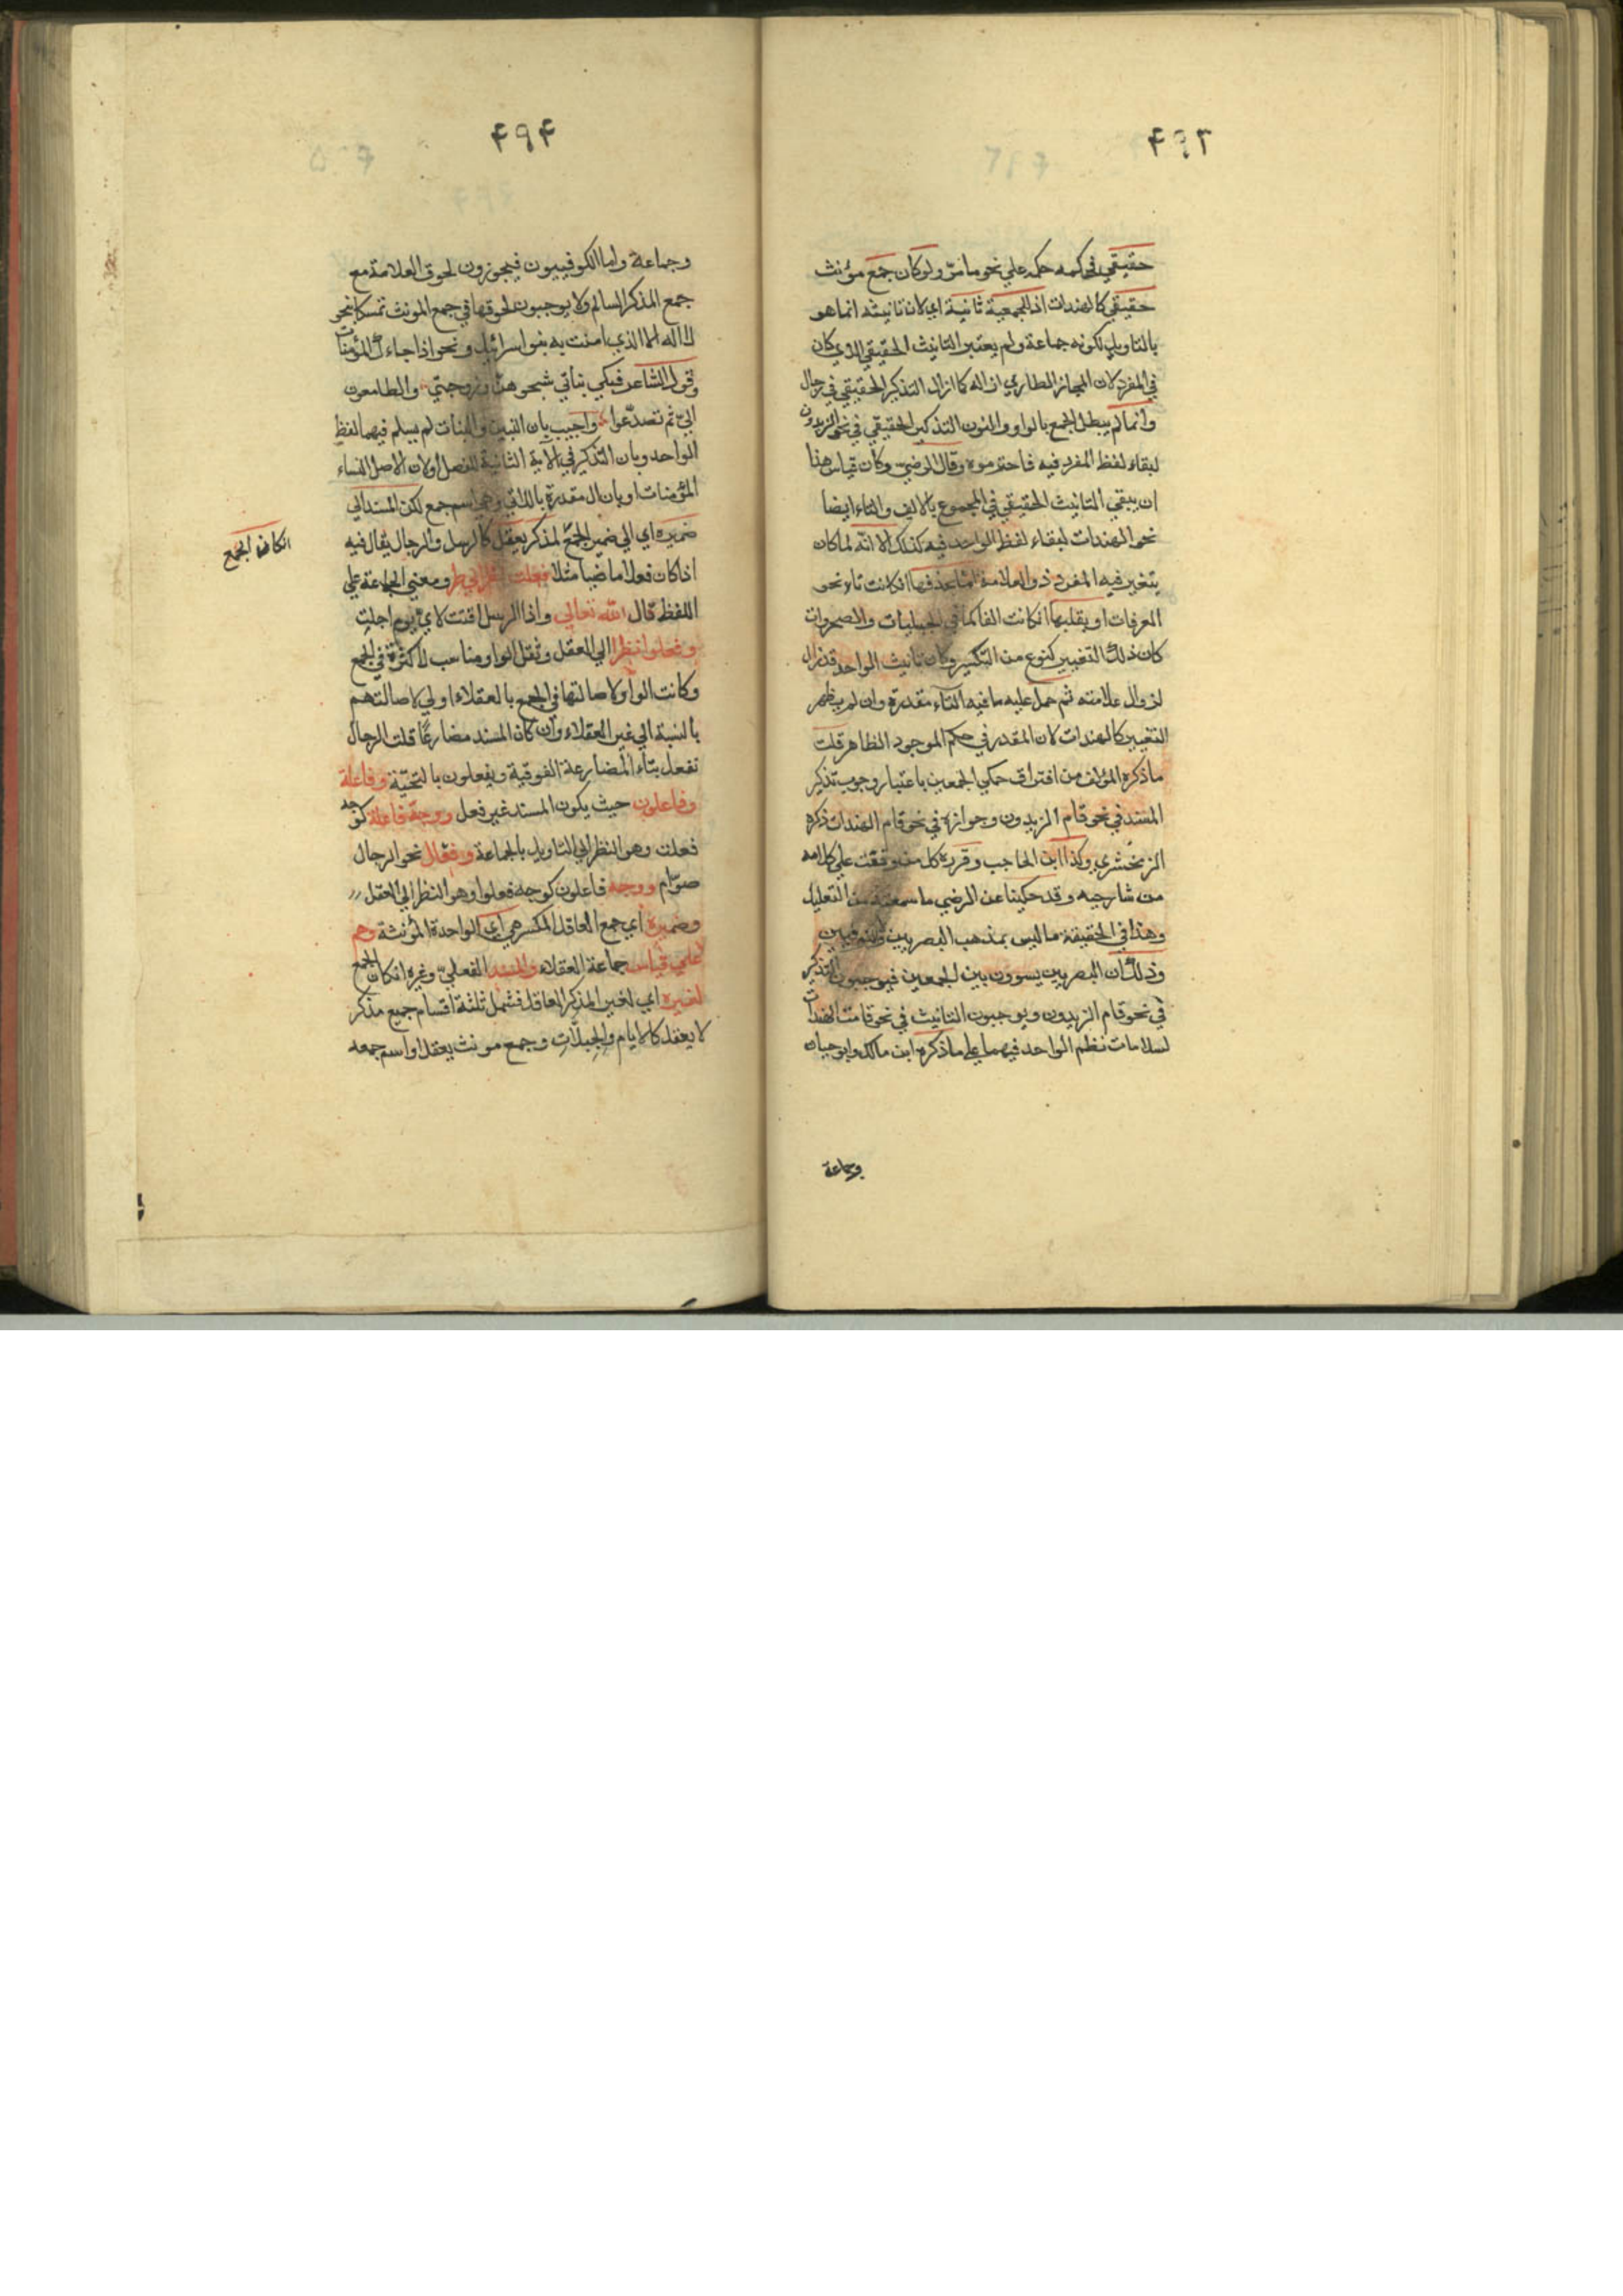 ٤٩٣
حقيقي فحكمه حكمه علي نحو ما مر ولو كان جمع مؤنث
حقيقي كالهندات اذ الجمعية ثانية اي لان تانيثه انما هو
بالتاويل لكونه جماعة ولم يعتبر التانيث الحقيقي الذي كان
في المفرد لان المجاز الطاري ازاله كما ازال التذكير الحقيقي في رجال
وانما لم يبطل الجمع بالواو والنون التذكير الحقيقي في نحو الزيدون
لبقاء لفظ المفرد فيه فاحترموه وقال الرضي وكان قياس هذا
ان يبقي التانيث الحقيقي في المجموع بالالف والتاء ايضا
نحو الهندات لبقاء لفظ الواحد فيه كذلك الا انه لما كان
يتغير فيه المفرد ذو العلامة اما بحذفها ان كانت تاء نحو
الغرفات او بقلبها ان كانت الفا كما في الحبليات والصحراوات
كان ذلك التغيير كنوع من التكسير وكان تانيث الواحد قد زال
لزوال علامته ثم حمل عليه ما فيه التاء مقدرة وان لم يظهر
التغيير كالهندات لان المقدر في حكم الموجود الظاهر قلت
ما ذكره المؤلف من افتراق حكمي الجمعين باعتبار وجوب تذكير
المسند في نحو قام الزيدون وجوازه في نحو قام الهندات ذكره
الزمخشري وكذا ابن الحاجب وقرره كل من وقفت علي كلامه
من شارحيه وقد حكينا عن الرضي ما سمعته من التعليل
وهذا في الحقيقة ما ليس بمذهب البصريين والكوفيين
وذلك ان البصريين يسوون بين الجمعين فيوجبون التذكير
في نحو قام الزيدون ويوجبون التانيث في نحو قامت الهندات
لسلامات نظم الواحد فيهما علي ما ذكره ابن مالك وابو حيان
وجماعة
٤٩٤
وجماعة واما الكوفييون فيجوزون لحوق العلامة مع
جمع المذكر السالم ولا يوجبون لحوقها في جمع المونث تمسكا بنحو
لا اله الا الذي امنت به بنو اسرائيل ونحو اذا جاءك المؤمنات
وقول الشاعر فبكي بناتي شجوهن وزوجتي والظاعنون
الي ثم تصدعوا واجيب بان البنين والبنات لم يسلم فيهما لفظ
الواحد وبان التذكير في الاية الثانية للفصل او لان الاصل النساء
المؤمنات او بان ال مقدرة باللاتي وهي اسم جمع لكن المسند الي
ضميره اي الي ضمير الجمع لمذكر يعقل كالرسل والرجال يقال فيه
اذا كان فعلا ماضيا مثلا فعلت نظرا الي ومعني الجماعة علي
اللفظ قال الله تعالي واذا الرسل اقتت لاي يوم اجلت
وفعلوا نظرا الي العقل وثقل الواو مناسب للكثرة في الجمع
وكانت الواو لاصالتها في الجمع بالعقلاء اولي لاصالتهم
بالنسبة الي غير العقلاء وان كان المسند مضارعا قلت الرجال
تفعل بتاء المضارعة الفوقية ويفعلون بالتحتية وفاعلة
وفاعلون حيث يكون المسند غير فعل ووجه فاعلة كوجه
فعلت وهو النظر الي التاويل بالجماعة وفعال نحو الرجال
صوام ووجه فاعلون كوجه فعلوا وهو النظر الي العقل
وضميره اي جمع العاقل المكسر هي اي الواحدة المؤنثة وهم
علي قياس جماعة العقلاء والمسند الفعلي وغيره ان كان الجمع
لغيره اي لغير المذكر العاقل فشمل ثلثة اقسام جميع مذكر
لا يعقل كالايام والجبلات وجمع مونث يعقل او اسم جمعه
ان كان الجمع